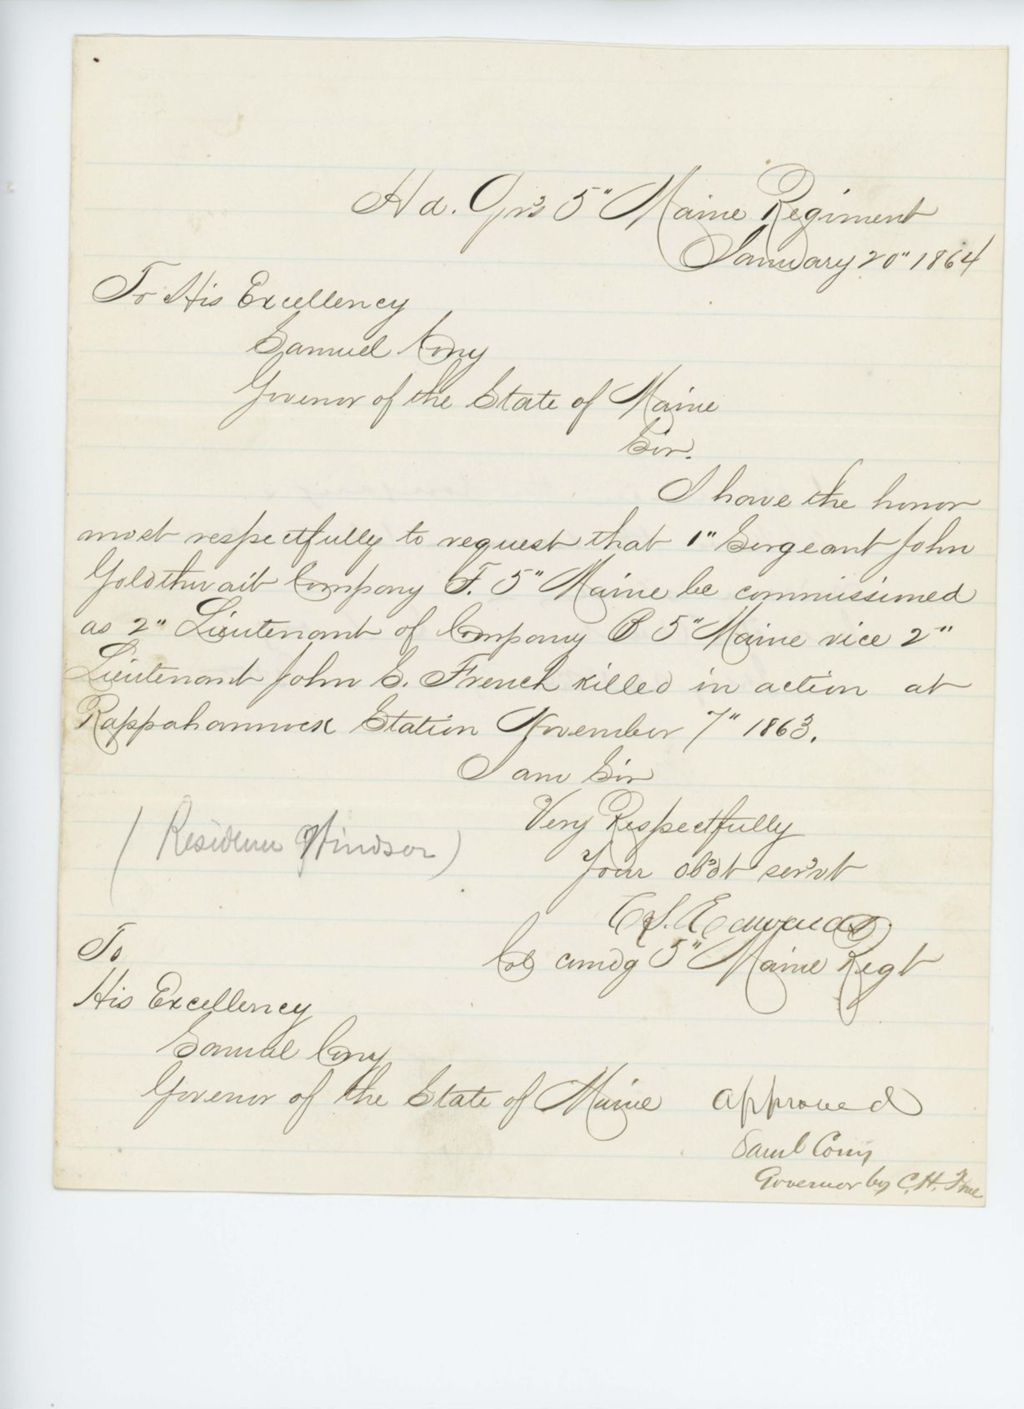 Hd. Qrs 5" Maine Regiment
January 20" 1864
To His Excellency
Samuel Cony
Govenor of the State of Maine
Sir.
I have the honor
most respectfully to request that 1" Sergeant John
Goldthwait Company F. 5" Maine be commissioned
as 2" Lieutenant of Company B 5" Maine vice 2"
Lieutenant John S. French killed in action at
Rappahannock Station November 7" 1863.
I am Sir
Very Respectfully
Your obdt servt
(Residence Windsor)
C. S. Edwards
Col comdg 5" Maine Regt
To
His Excellency
Samuel Cony
Govenor of the State of Maine
approved
Saml Cony
Governor by C. H.